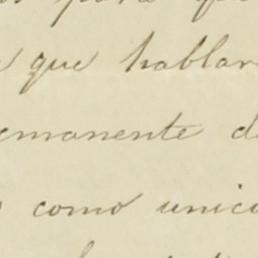 para que
que hablar
emanente d
como unico